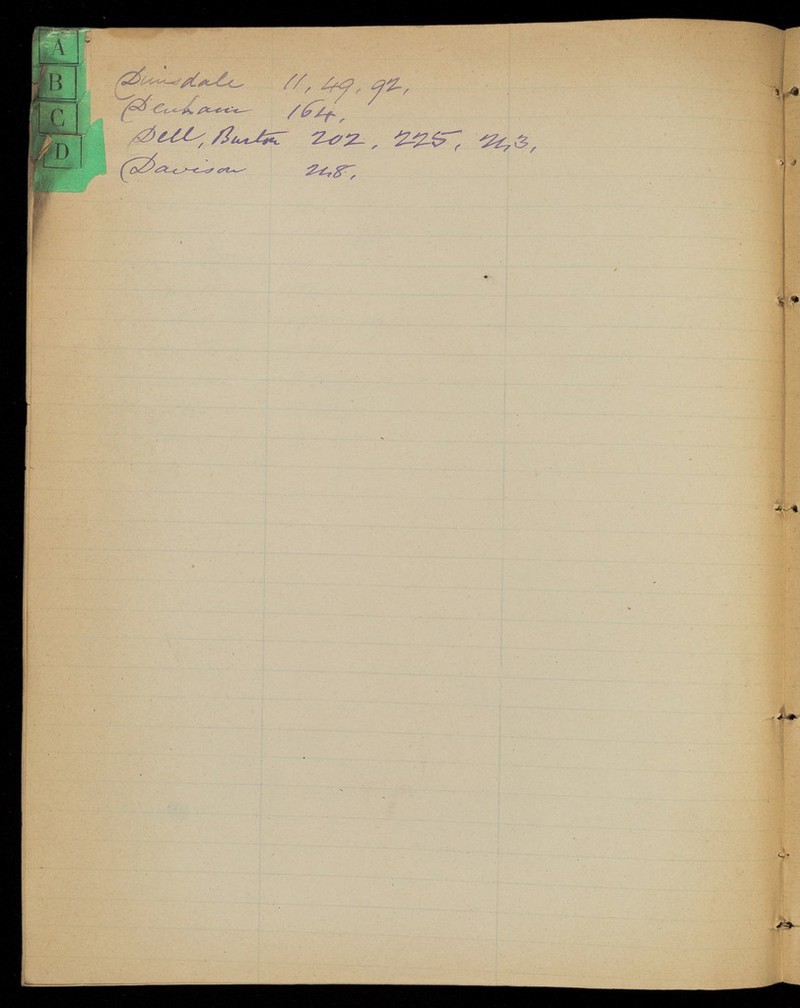 A
B
C
D
Dinsdale 11, 49, 92,
Denham 164,
Dell, Burton 202, 225, 243,
Davison 248,